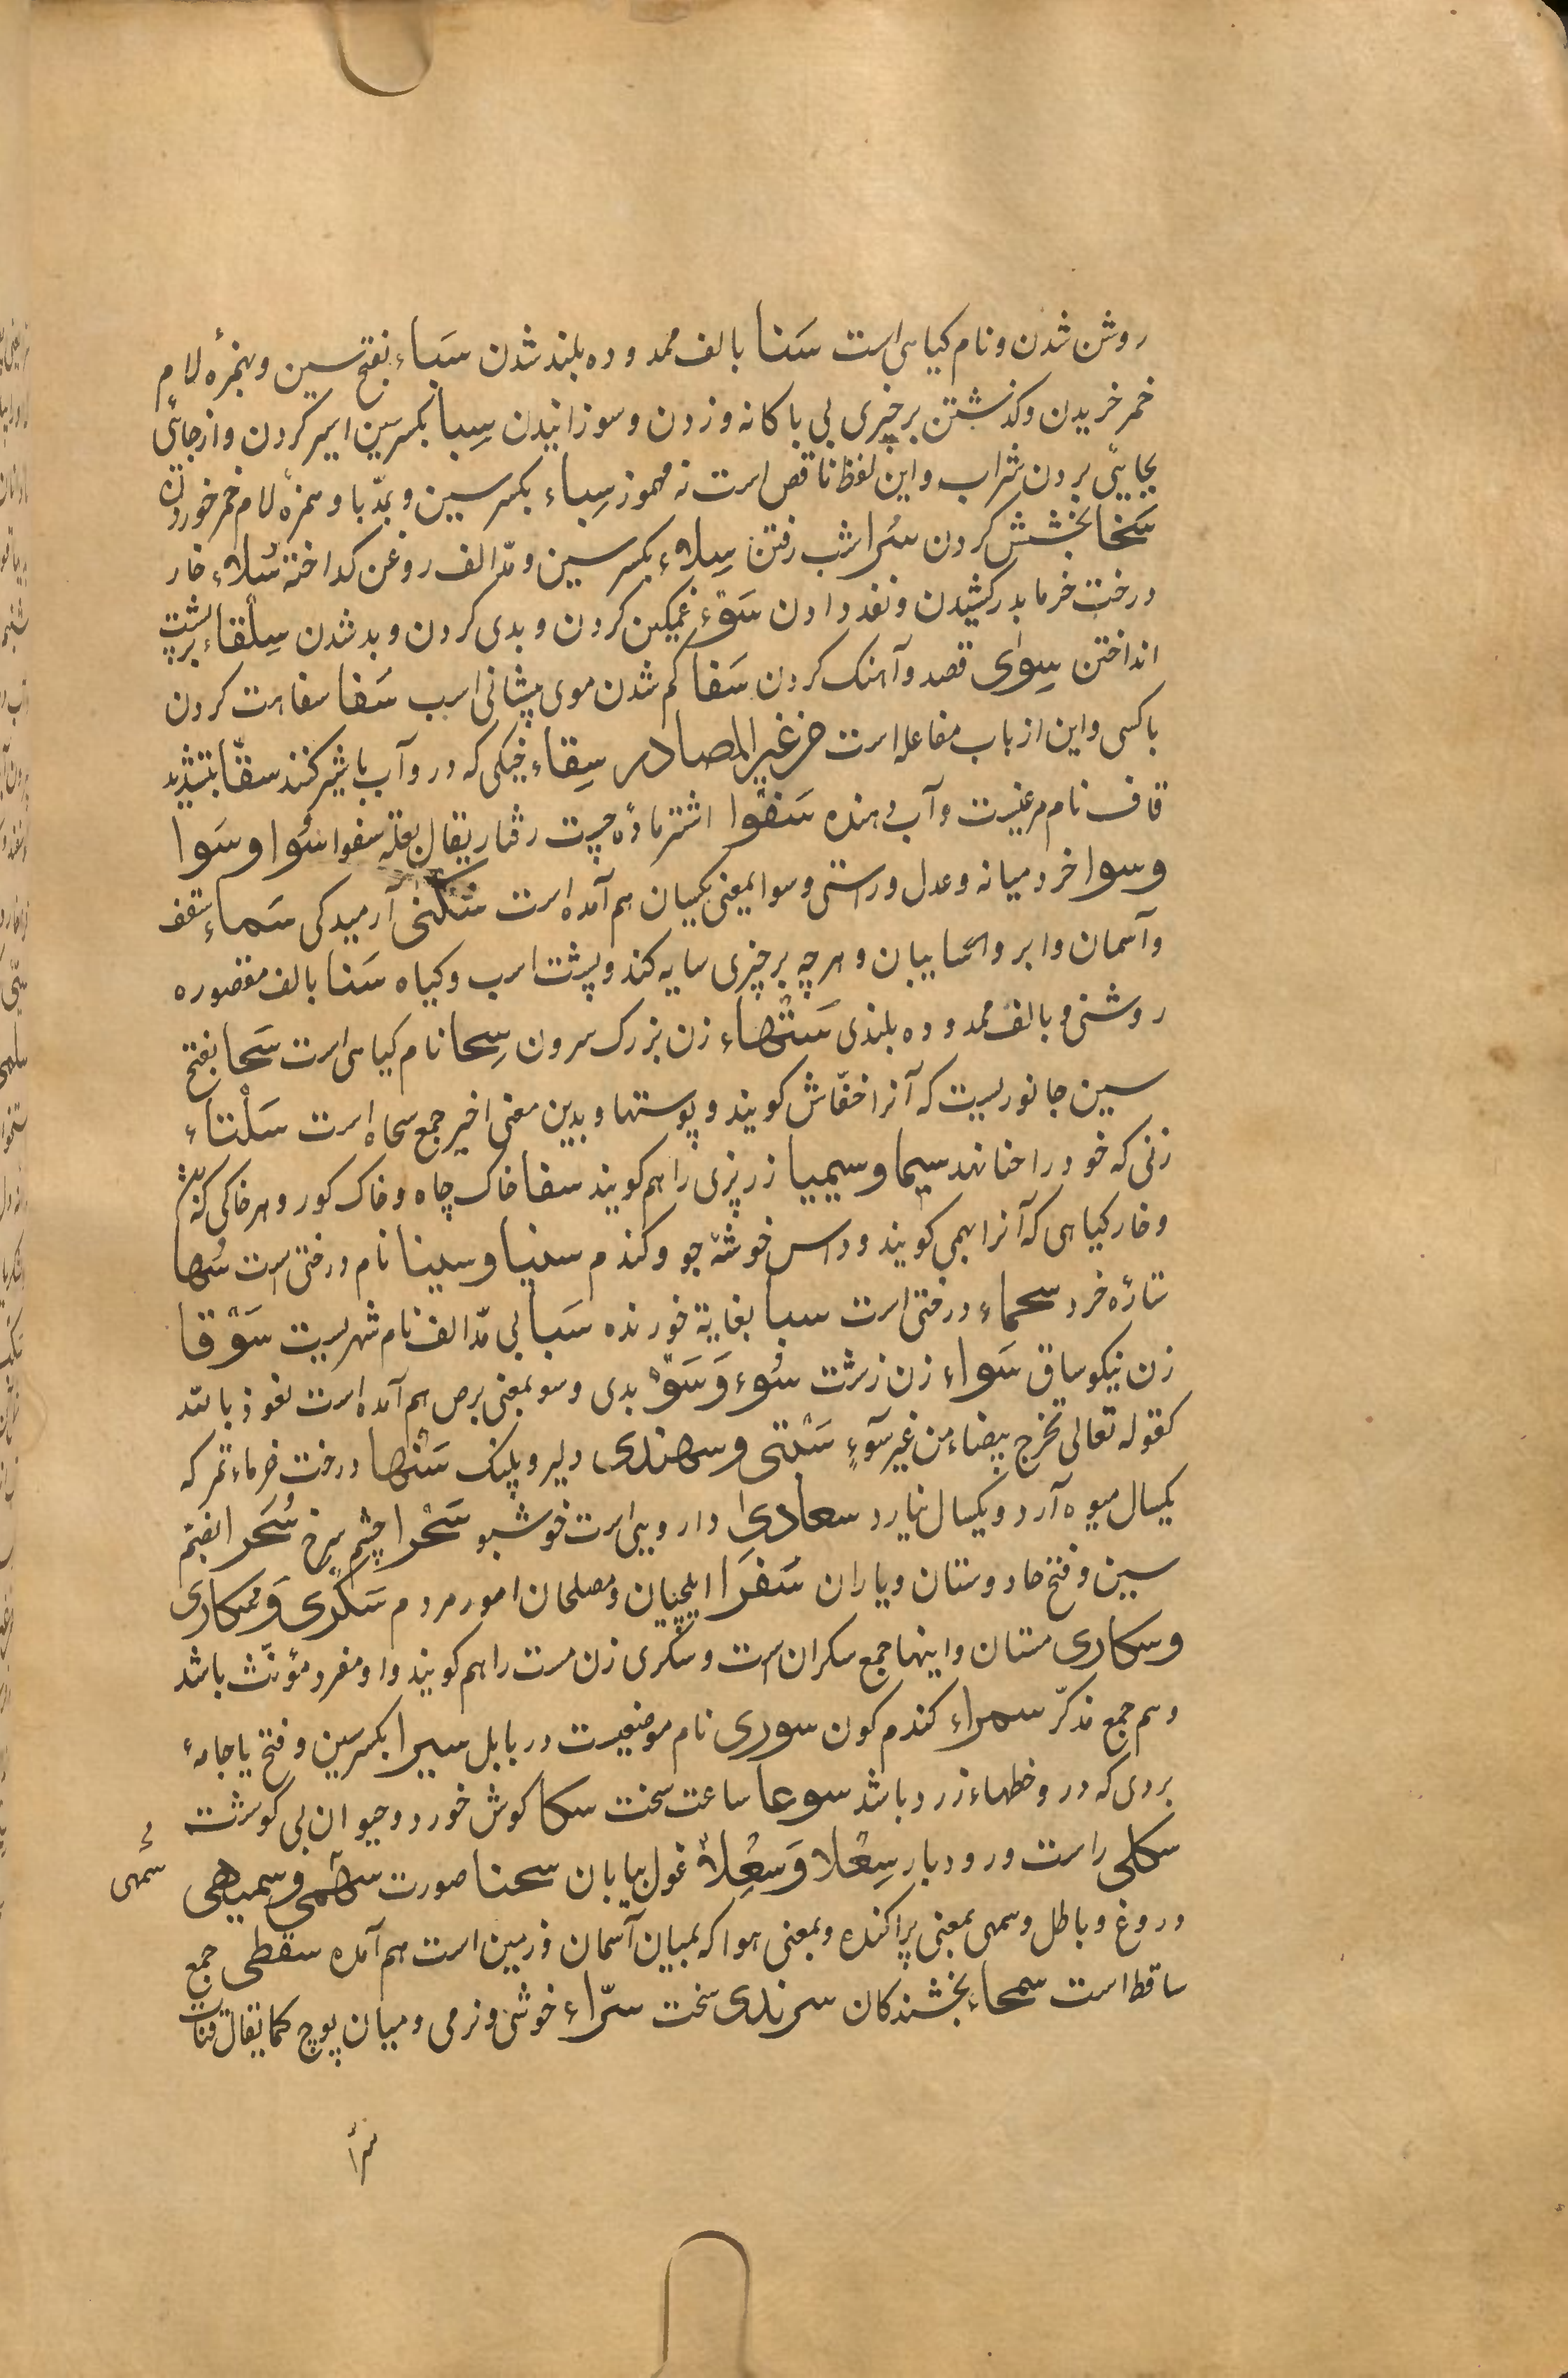 روشن شدن و نام کیاهی است سَنا بالف ممدوده بلند شدن سَباء بفتح سین و همزهٔ لام
خمر خریدن و کذشتن بر چیزی بی باکانه و زدن و سوزانیدن سِبا بکسر سین اسیر کردن و از جائی
بجایی بردن شراب و این لفظ ناقص است نه مهموز سِباء بکسر سین و بمدّ با و همزهٔ لام خمر خوردن
سَخا بخشش کردن سُرا شب رفتن سِلاء بکسر سین و مدّ الف روغن کداخته سُلاء خار
درخت خرما بدر کشیدن و نقد دادن سَوْء غمکین کردن و بدی کردن و بد شدن سِلْقاء بر پشت
انداختن سِوای قصد و آهنک کردن سَفا کم شدن موی پیشانی اسب سَفا سفاهت کردن
با کسی و این از باب مفاعله است من غیر المصادر سِقاء خیکی که در و آب یا شیر کنند سقّا بتشدید
قاف نام مرغیست و آب دهنده سَفْوا اشتر مادهٔ چست رفتار یقال بغلة سفوا سُوا و سَوا
و سوا خرد میانه و عدل و راستی و سوا بمعنی یکسان هم آمده است سَکْنی آرمیدکی سَماء سقف
و آسمان و ابر و سایبان و هر چه بر چیزی سایه کند و پشت اسب و کیاه سَنا بالف مقصوره
روشنی و بالف ممدوده بلندی سَتْهاء زن بزرک سرون سِحا نام کیاهی است سَحا بفتح
سین جانوریست که آنرا خفّاش کویند و پوستها و بدین معنی اخیر جمع سحاه است سَلْتاء
زنی که خود را حنا نهد سیما و سیمیا زر پزی را هم کویند سفا خاک چاه و خاک کور و هر خاکی که باشد
و خار کیاهی که آنرا بهمی کویند و داس خوشهٔ جو و کندم سنیا و سینا نام درختی است سُها
ستارهٔ خرد سحماء درختی است سبا بغایة خورنده سَبا بی مدّ الف نام شهریست سَوْقا
زن نیکو ساق سَواء زن زشت سُوء وَ سَوْ بدی و سو بمعنی برص هم آمده است نعوذ بالله
کقوله تعالی تخرج بیضاء من غیر سوٓءٍ سَبْنتی و سهندی دلیر و پلنک سَنْها درخت خرما ثمر که
یکسال میوه آرد و یکسال نیارد سعادی دارویی است خوشبو سَحْرا چشم سرخ سُحَرا بضم
سین و فتح حا دوستان و یاران سُفَرَا ایلچیان و مصلحان امور مردم سَکْری وَ سُکاری
و سکاری مستان و اینها جمع سکران است و سکری زن مست را هم کویند و او مفرد مؤنث باشد
و هم جمع مذکّر سمراء کندم کون سوری نام موضعیست در بابل سیرا بکسر سین و فتح یا جامهٔ
بردی که در و خطهاء زرد باشد سوعا ساعت سخت سکا کوش خورد و حیوان بی کوشت
سکلی راست و رودبار سِعْلا وَ سَعِلاْ غول بیابان سحنا صورت سهمی و سمیهی
دروغ و باطل و سمهی بمعنی پراکنده و بمعنی هوا که بمیان آسمان و زمین است هم آمده سقطی جمع
ساقط است سمحاء بخشندکان سرندی سخت سرّاء خوشی و نرمی و میان پوچ کما یقال قناة
سُمّهی
سرا